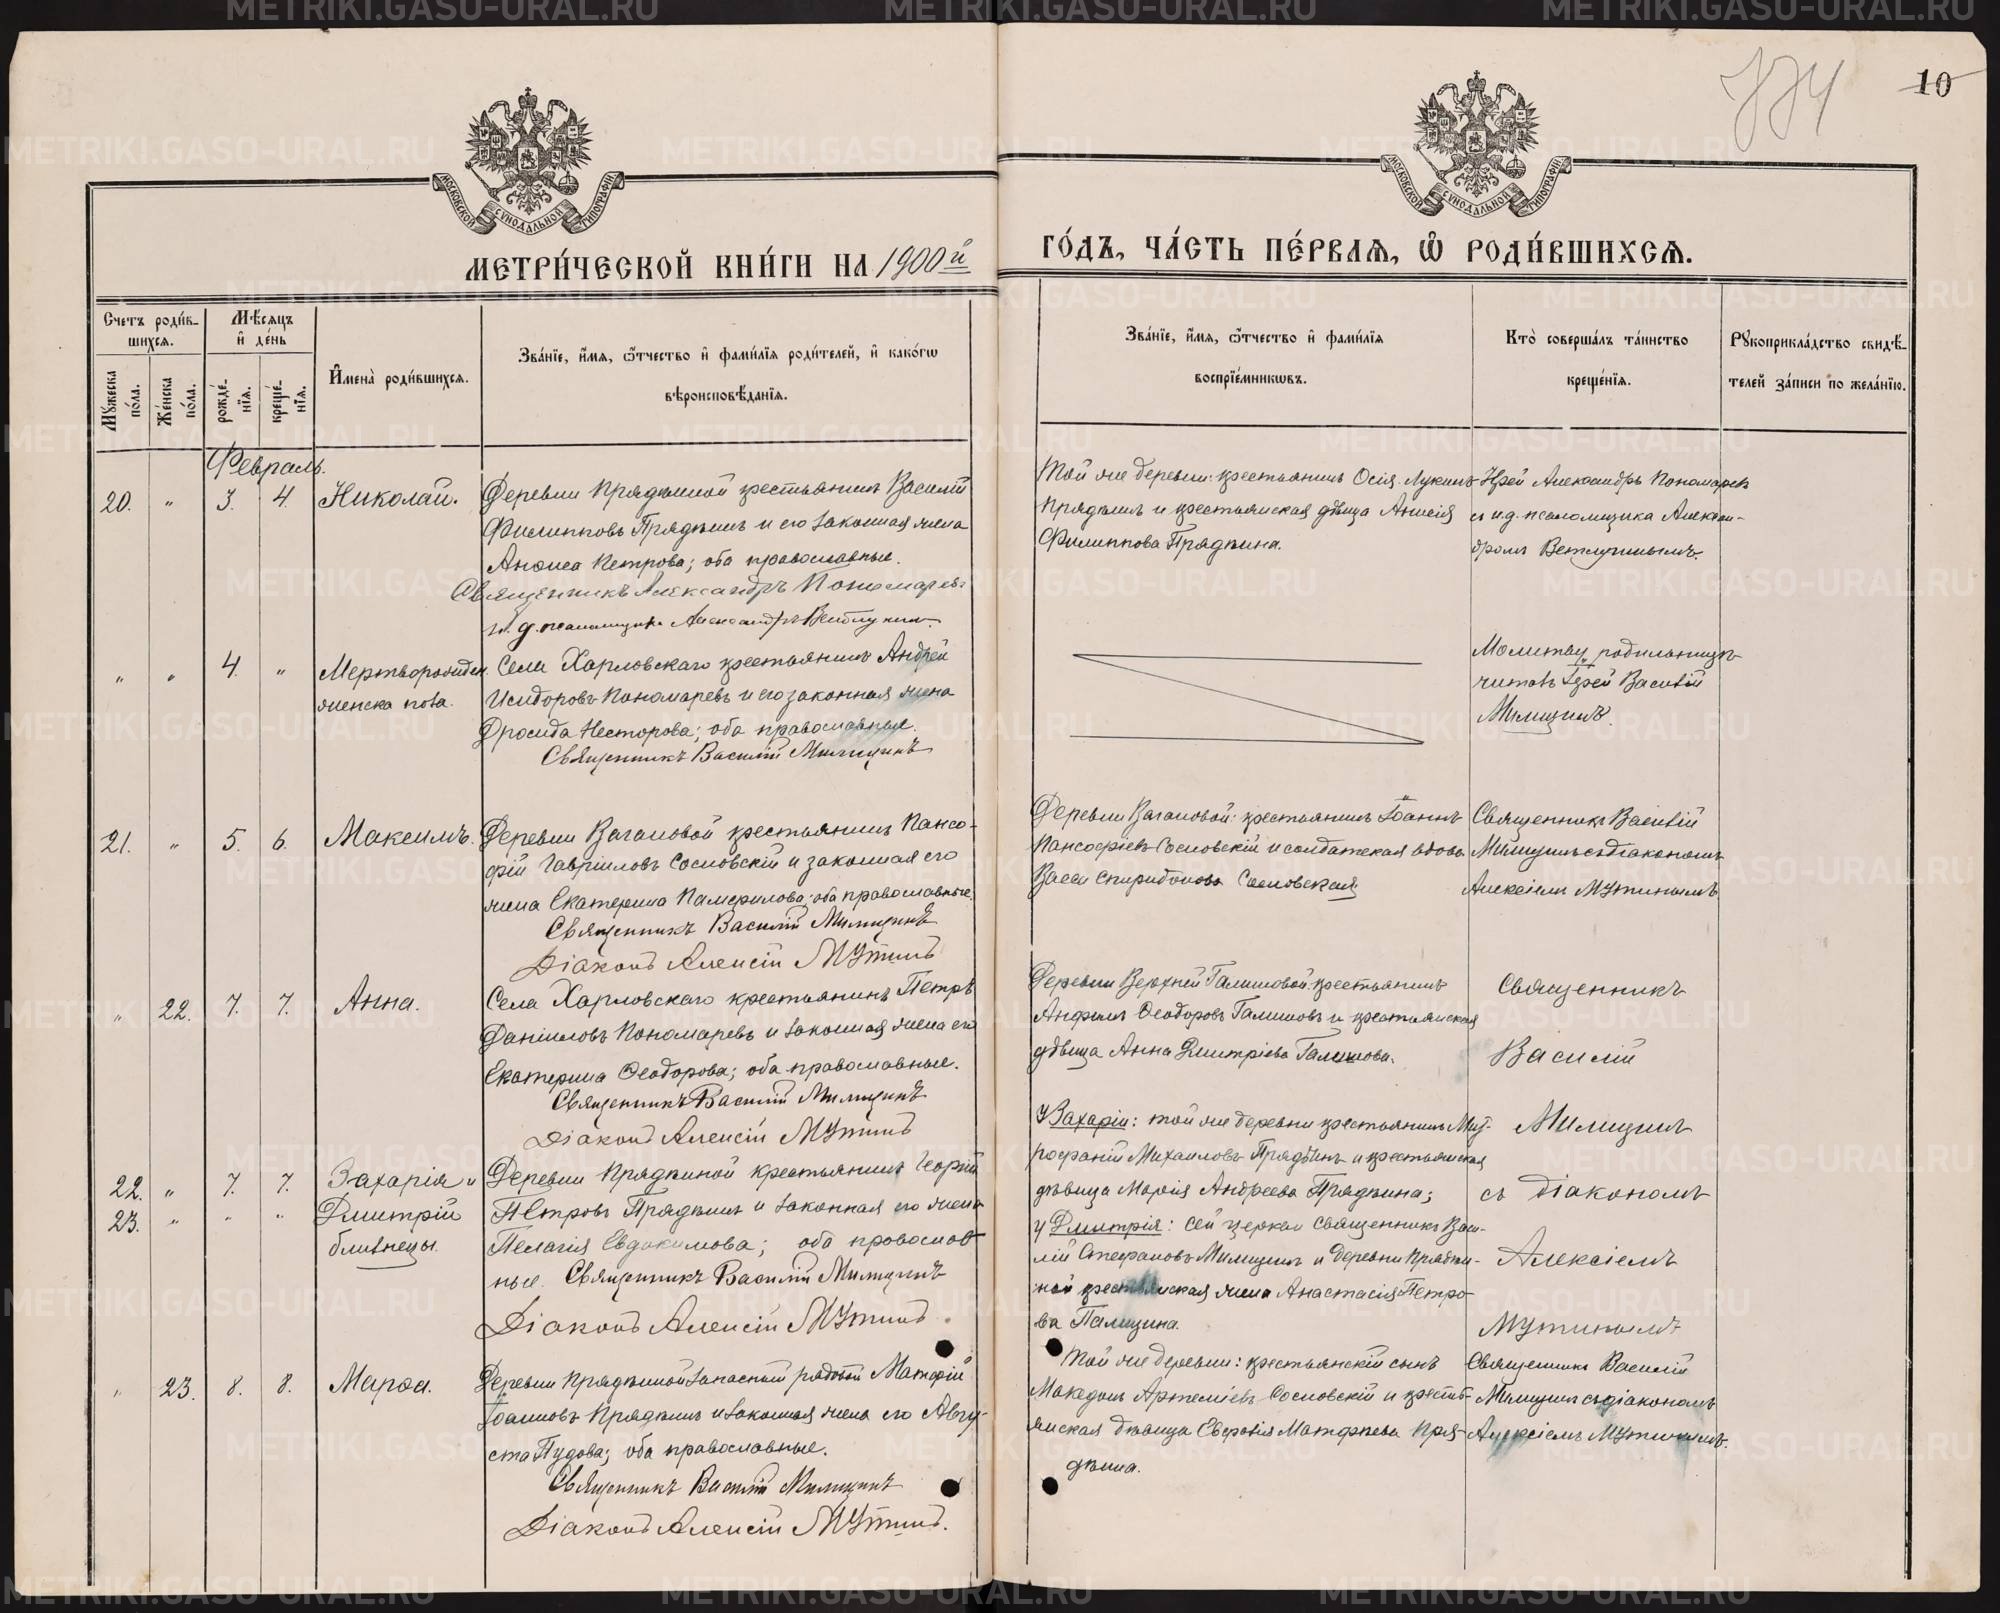 774
10
МОСКОВСКОЙ СѴНОДАЛЬНОЙ ТИПОГРАФІИ
МОСКОВСКОЙ СѴНОДАЛЬНОЙ ТИПОГРАФІИ
МЕТРИ́ЧЕСКОЙ КНИ́ГИ НА 1900й
ГО́ДЪ, ЧА́СТЬ ПЕ́РВАѦ, Ѽ РОДИ́ВШИХСѦ.
Счетъ роди́в-
шихсѧ.
Мѣ́сѧцъ
и҆ де́нь
Мꙋ́жеска
по́ла.
Же́нска
по́ла.
рожде́-
нїѧ.
креще́-
нїѧ.
И҆мена̀ роди́вшихсѧ.
Зва́нїе, и҆́мѧ, ѻ҆́тчество и҆ фами́лїѧ роди́телей, и҆ како́гѡ
вѣроисповѣ́данїѧ.
Зва́нїе, и҆́мѧ, ѻ҆́тчество и҆ фами́лїѧ
воспрїе́мникѡвъ.
Кто̀ соверша́лъ та́инство
креще́нїѧ.
Рꙋкоприкла́дство свидѣ́-
телей за́писи по жела́нїю.
Февраль.
20. " 3. 4. Николай.
Деревни Прядкиной крестьянинъ Василій
Филипповъ Прядкинъ и его законная жена
Анфиса Петрова; оба православные.
Священникъ Александръ Пономаревъ
И. д. псаломщика Александръ Ветлугинъ.
Той же деревни: крестьянинъ Осія Лукинъ
Прядкинъ и крестьянская дѣвица Анисія
Филиппова Прядкина.
Іерей Александръ Пономаревъ
съ и.д. псаломщика Алексан-
дромъ Ветлугинымъ.
" " 4. " Мертворожден.
женска пола.
Села Харловскаго крестьянинъ Андрей
Исидоровъ Пономаревъ и его законная жена
Дросида Несторова; оба православные.
Священникъ Василій Милицинъ
Молитву родильницѣ
читалъ Іерей Василій
Милицинъ.
21. " 5. 6. Максимъ.
Деревни Вагановой крестьянинъ Пансо-
фій Гавріиловъ Сосновскій и законная его
жена Екатерина Памфилова; оба православные.
Священникъ Василій Милицинъ
Діаконъ Алексій Мутинъ
Деревни Вагановой: крестьянинъ Іоаннъ
Пансофіевъ Сосновскій и солдатская вдова
Васса Спиридонова Сосновская
Священникъ Василій
Милицинъ съ діакономъ
Алексіемъ Мутинымъ.
" 22. 7. 7. Анна.
Села Харловскаго крестьянинъ Петръ
Даніиловъ Пономаревъ и законная жена его
Екатерина Ѳеодорова; оба православные.
Священникъ Василій Милицинъ
Діаконъ Алексій Мутинъ
Деревни Верхней Галишовой крестьянинъ
Анфимъ Ѳеодоровъ Галишовъ и крестьянская
дѣвица Анна Дмитріева Галишова.
Священникъ
Василій
Милицинъ
съ діакономъ
Алексіемъ
Мутинымъ
22. " 7. 7. Захарія и
23. " " " Дмитрій
близнецы.
Деревни Прядкиной крестьянинъ Георгій
Петровъ Прядкинъ и законная его жена
Пелагія Евдокимова; оба православ
ные. Священникъ Василій Милицинъ
Діаконъ Алексій Мутинъ.
У Захаріи: той же деревни крестьянинъ Мит-
рофаній Михаиловъ Прядкинъ и крестьянская
дѣвица Марія Андреева Прядкина;
у Дмитрія: сей церкви священникъ Васи-
лій Стефановъ Милицинъ и деревни Прядки-
ной крестьянская жена Анастасія Петро-
ва Палицина.
" 23. 8. 8. Марѳа.
Деревни Прядкиной запасный рядовой Матфій
Іоанновъ Прядкинъ и законная жена его Авгу-
ста Пудова; оба православные.
Священникъ Василій Милицинъ
Діаконъ Алексій Мутинъ.
Той же деревни: крестьянскій сынъ
Македонъ Артеміевъ Сосновскій и кресть-
янская дѣвица Евфалія Матфіева Пря-
дкина.
Священникъ Василій
Милицинъ съ діакономъ
Алексіемъ Мутинымъ.